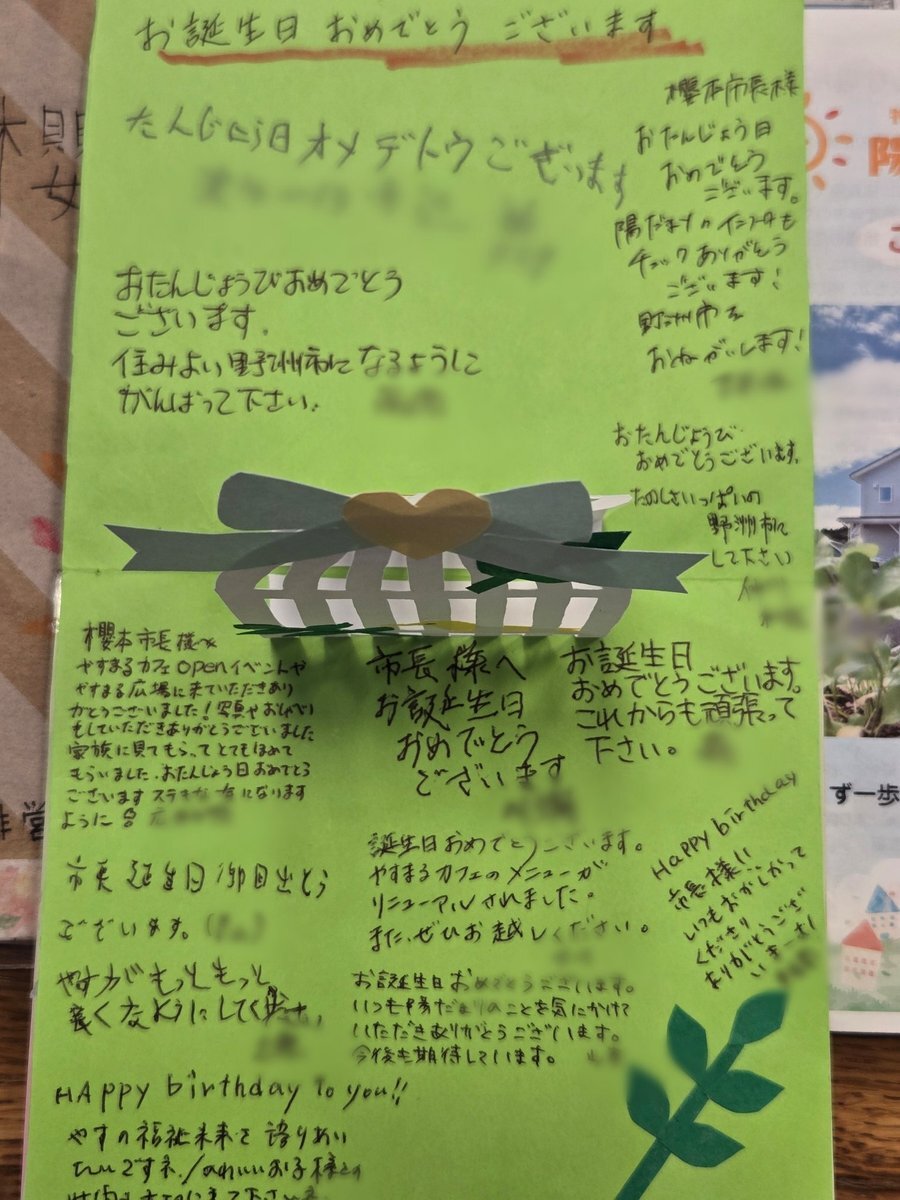 お誕生日 おめでとう ございます
たんじょう日オメデトウございます
櫻本市長様
おたんじょう日
おめでとう
ございます。
陽だまりのインスタも
チェックありがとう
ございます!
野洲市を
おねがいします!
おたんじょうびおめでとう
ございます。
住みよい野洲市になるようにして
がんばって下さい。
おたんじょうび
おめでとうございます。
たのしさいっぱいの
野洲市に
して下さい
櫻本市長様へ
やすまるカフェopenイベントや
やすまる広場に来ていただきあり
がとうございました!写真やおしゃべり
もしていただきありがとうございました
家族に見てもらってとてもほめて
もらいました。おたんじょう日おめでとう
ございます ステキな になります
ように
市長様へ
お誕生日
おめでとう
ございます
お誕生日
おめでとうございます。
これからも頑張って
下さい。
市長 誕生日御目出とう
ございます。
誕生日おめでとうございます。
やすまるカフェのメニューが
リニューアルされました。
また、ぜひお越しください。
Happy birthday
市長様!!
いつもおがしかって
くださり
ありがとうござ
いまーす!
やすがもっともっと
良くなるようにして
お誕生日おめでとうございます。
いつも陽だまりのことを気にかけて
いただきありがとうございます。
今後も期待しています。
HAppy birthday to you!!
やすの福祉未来を語りあい
たいですネ!
陽
ず一歩